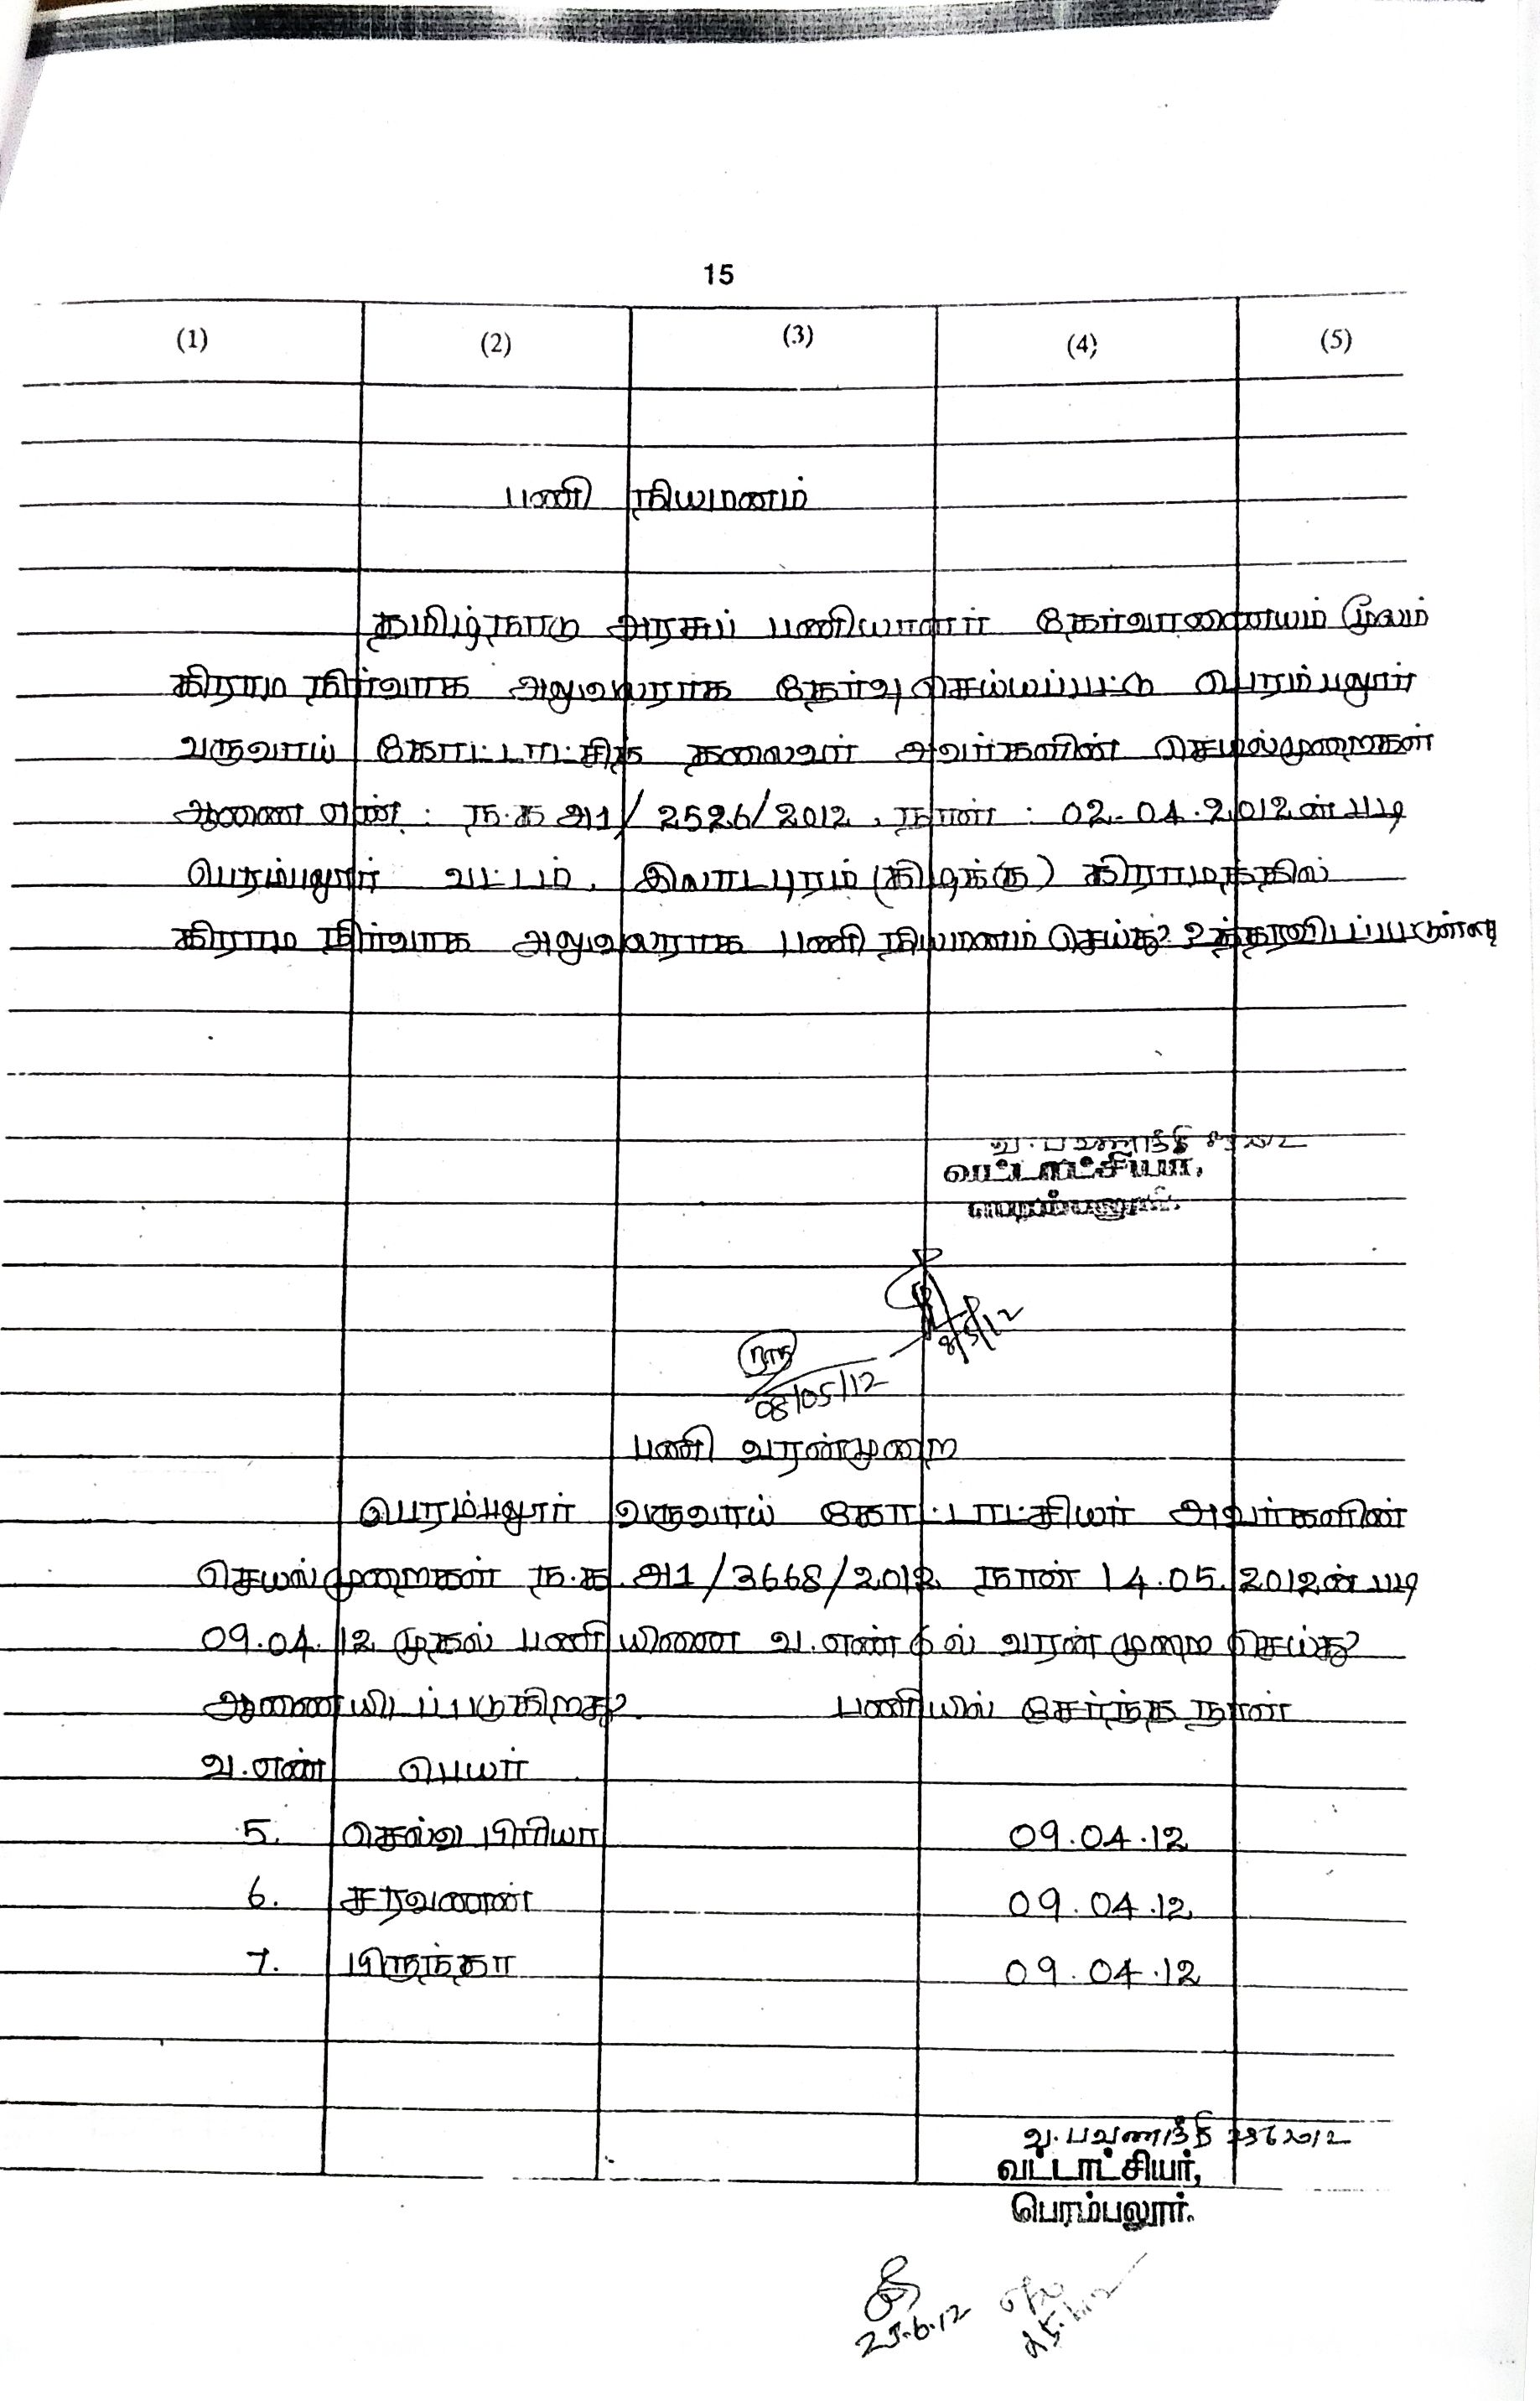 15
(1) (2) (3) (4) (5)
பணி நியமனம்
தமிழ்நாடு அரசுப் பணியாளர் தேர்வாணையம் மூலம்
கிராம நிர்வாக அலுவலராக தேர்வு செய்யப்பட்டு பெரம்பலூர்
வருவாய் கோட்டாட்சித் தலைவர் அவர்களின் செயல்முறைகள்
ஆணை எண் : ந.க அ1/2526/2012, நாள் : 02.04.2012ன் படி
பெரம்பலூர் வட்டம், இலாடபுரம் (கிழக்கு) கிராமத்தில்
கிராம நிர்வாக அலுவலராக பணி நியமனம் செய்து உத்தரவிடப்பட்டுள்ளது
வ.பவணந்தி
வட்டாட்சியர்,
பெரம்பலூர்.
8/5/12
08/05/12
பணி வரன்முறை
பெரம்பலூர் வருவாய் கோட்டாட்சியர் அவர்களின்
செயல்முறைகள் ந.க. அ1/3668/2012 நாள் 14.05.2012ன் படி
09.04.12 முதல் பணியினை வ.எண் 6 ல் வரன்முறை செய்து
ஆணையிடப்படுகிறது. பணியில் சேர்ந்த நாள்
வ.எண் பெயர்
5. செல்வ பிரியா 09.04.12
6. சரவணன் 09.04.12
7. பிருந்தா 09.04.12
வ.பவணந்தி
வட்டாட்சியர்,
பெரம்பலூர்.
25.6.12